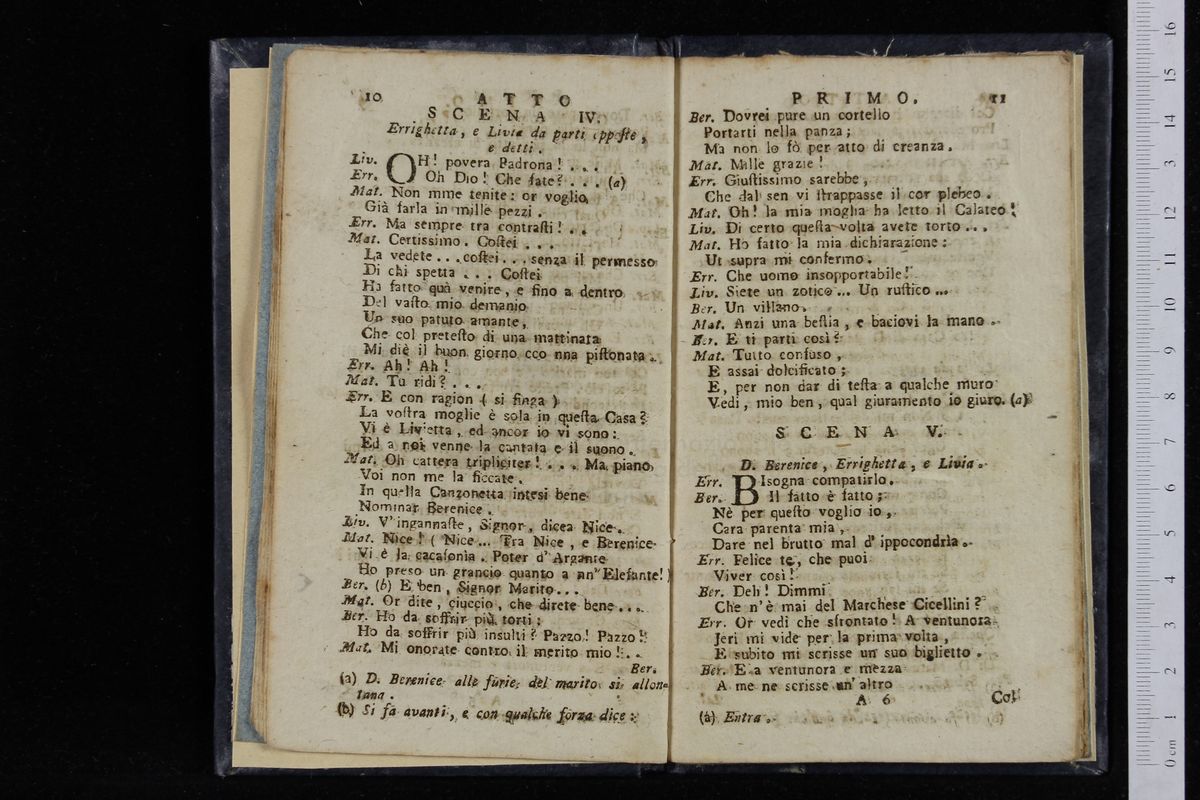 10 ATTO
SCENA IV.
Errighetta, e Livia da parti opposte,
e detti.
Liv. OH! povera Padrona! . . .
Err. Oh Dio! Che fate? . . . (a)
Mat. Non mme tenite: or voglio
Già farla in mille pezzi.
Err. Ma sempre tra contrasti! . .
Mat. Certissimo. Costei . . .
La vedete . . . costei . . . senza il permesso
Di chi spetta . . . Costei
Ha fatto quà venire, e fino a dentro
Del vasto mio demanio
Un suo patuto amante,
Che col pretesto di una mattinata
Mi diè il buon giorno cco nna pistonata.
Err. Ah! Ah!
Mat. Tu ridi? . . .
Err. E con ragion ( si finga )
La vostra moglie è sola in questa Casa?
Vi è Livietta, ed ancor io vi sono:
Ed a noi venne la cantata e il suono.
Mat. Oh cattera tripliciter! . . . Ma piano,
Voi non me la ficcate.
In quella Canzonetta intesi bene
Nominar Berenice.
Liv. V'ingannaste, Signor, dicea Nice.
Mat. Nice! ( Nice ... Tra Nice, e Berenice
Vi è la cacafonia. Poter d'Argante
Ho preso un grancio quanto a nn'Elefante! )
Ber. (b) E ben, Signor Marito...
Mat. Or dite, ciuccio, che direte bene...
Ber. Ho da soffrir più torti:
Ho da soffrir più insulti? Pazzo! Pazzo!
Mat. Mi onorate contro il merito mio!...
Ber.
(a) D. Berenice alle furie del marito si allon-
tana.
(b) Si fa avanti, e con qualche forza dice:
PRIMO. 11
Ber. Dovrei pure un cortello
Portarti nella panza;
Ma non lo fò per atto di creanza.
Mat. Mille grazie!
Err. Giustissimo sarebbe,
Che dal sen vi strappasse il cor plebeo.
Mat. Oh! la mia moglia ha letto il Calateo!
Liv. Di certo questa volta avete torto...
Mat. Ho fatto la mia dichiarazione:
Ut supra mi confermo.
Err. Che uomo insopportabile!
Liv. Siete un zotico ... Un rustico ...
Ber. Un villano.
Mat. Anzi una bestia, e baciovi la mano.
Ber. E ti parti così?
Mat. Tutto confuso,
E assai dolcificato;
E, per non dar di testa a qualche muro
Vedi, mio ben, qual giuramento io giuro. (a)
SCENA V.
D. Berenice, Errighetta, e Livia.
Err. BIsogna compatirlo.
Ber. Il fatto è fatto;
Nè per questo voglio io,
Cara parenta mia,
Dare nel brutto mal d'ippocondria.
Err. Felice te, che puoi
Viver così!
Ber. Deh! Dimmi
Che n'è mai del Marchese Cicellini?
Err. Or vedi che sfrontato! A ventunora
Jeri mi vide per la prima volta,
E subito mi scrisse un suo biglietto.
Ber. E a ventunora e mezza
A me ne scrisse un'altro
A 6 Col
(a) Entra.